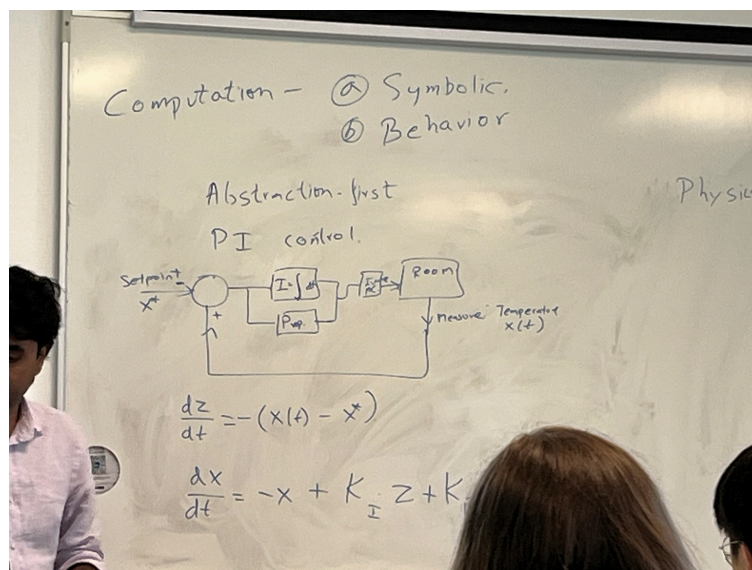 Computation - ⓐ Symbolic.
ⓑ Behavior
Abstraction-first
Physic
PI control.
Setpoint
x*
I = ∫ dt
Prop.
Room
+
Measure Temperature
x(t)
dz/dt = -(x(t) - x*)
dx/dt = -x + K_I z + K